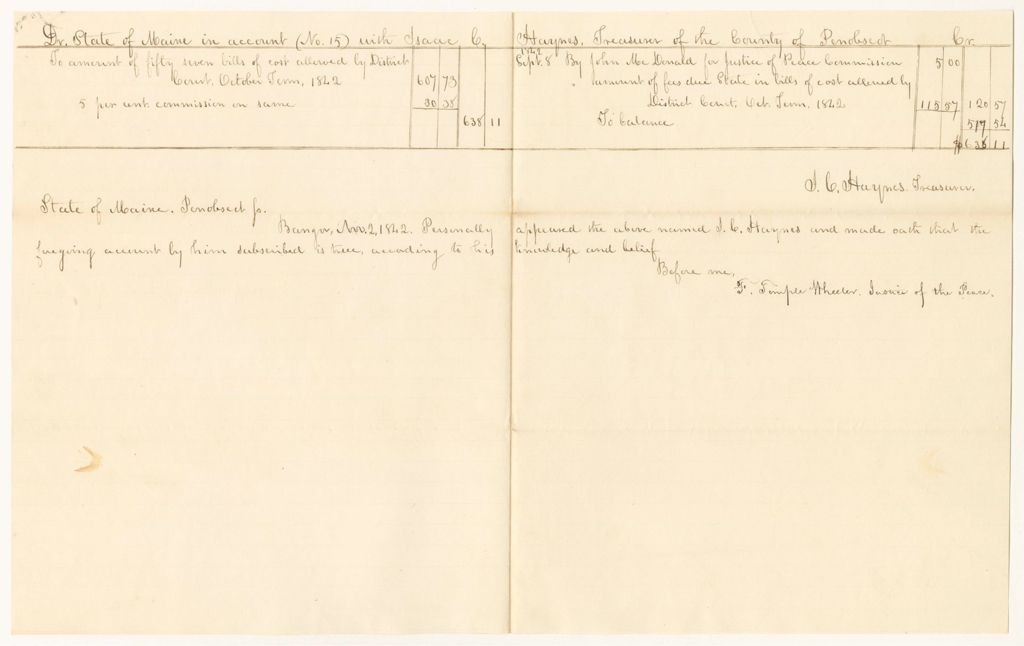 Dr. State of Maine in account (No. 15) with Isaac C. Haynes, Treasurer of the County of Penobscot Cr.
To amount of fifty seven bills of cost allowed by District
Court, October Term, 1842 607 73
5 per cent. commission on same 30 38
638 11
1842
Sept. 8 By John McDonald for Justice of Peace Commission 5 00
amount of fees due State in bills of cost allowed by
District Court, Oct. Term, 1842 115 57 120 57
To balance 517 54
$638 11
I. C. Haynes Treasurer.
State of Maine. Penobscot ss.
Bangor, Nov. 2, 1842. Personally appeared the above named I. C. Haynes and made oath that the
foregoing account by him subscribed is true, according to his knowledge and belief
Before me,
F. Temple Wheeler. Justice of the Peace.